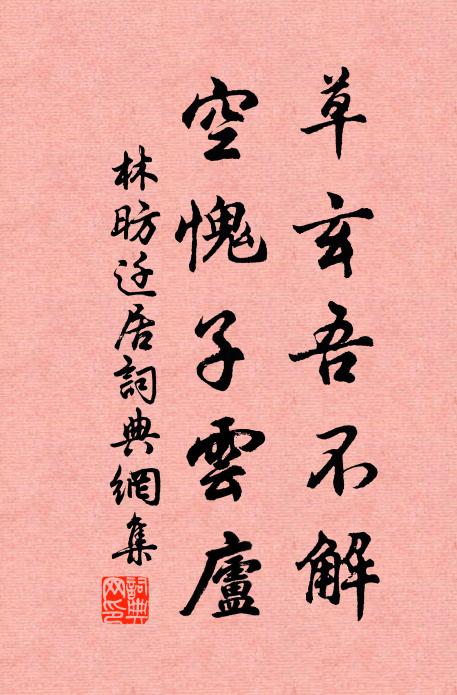 草玄吾不解
空愧子雲廬
林昉迁居詞典網集
詞典
网印